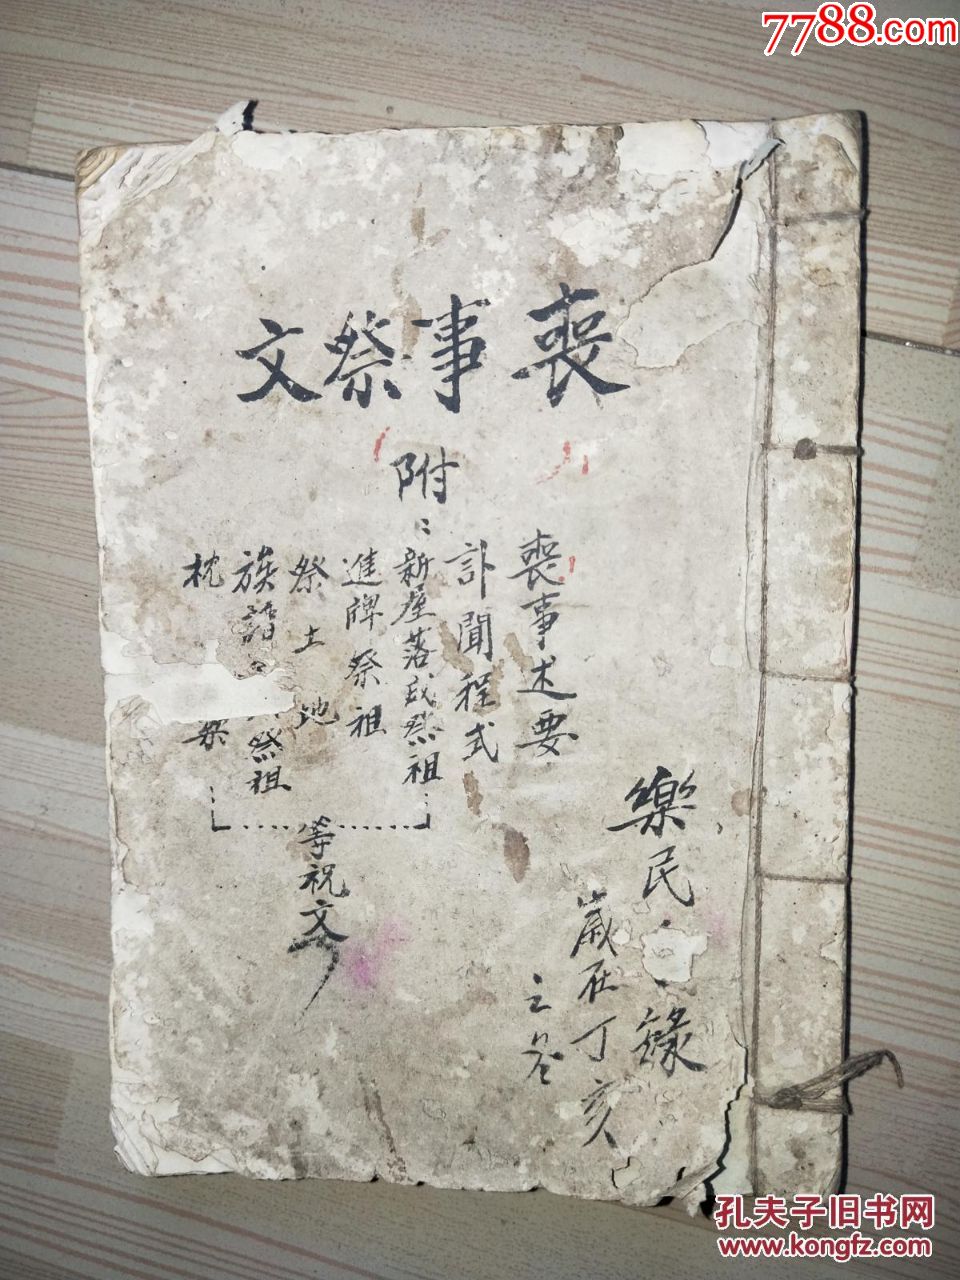 7788.com
喪事祭文
附：
喪事述要
訃聞程式
新座落成祭祖
進牌祭祖
祭土地
族譜祭祖
枕
等祝文
樂民錄
歲在丁亥
之冬
孔夫子旧书网
www.kongfz.com